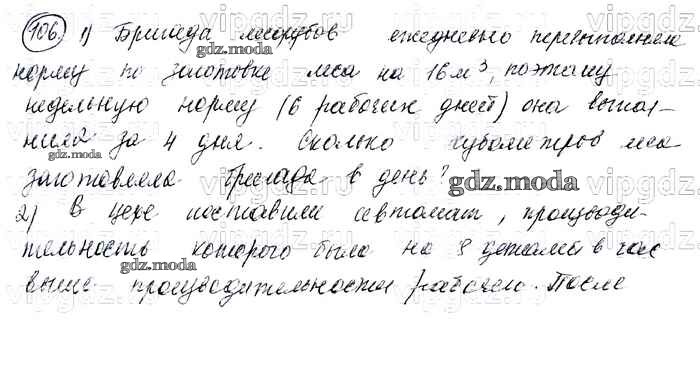 106. 1) Бригада лесорубов ежедневно перевыполняла
норму по заготовке леса на 16 м³, поэтому
недельную норму (6 рабочих дней) она выпол-
нила за 4 дня. Сколько кубометров леса
заготовляла бригада в день?
2) В цехе поставили автомат, производи-
тельность которого была на 8 деталей в час
выше производительности рабочего. После
gdz.moda
gdz.moda
gdz.moda
gdz.moda
vipgdz